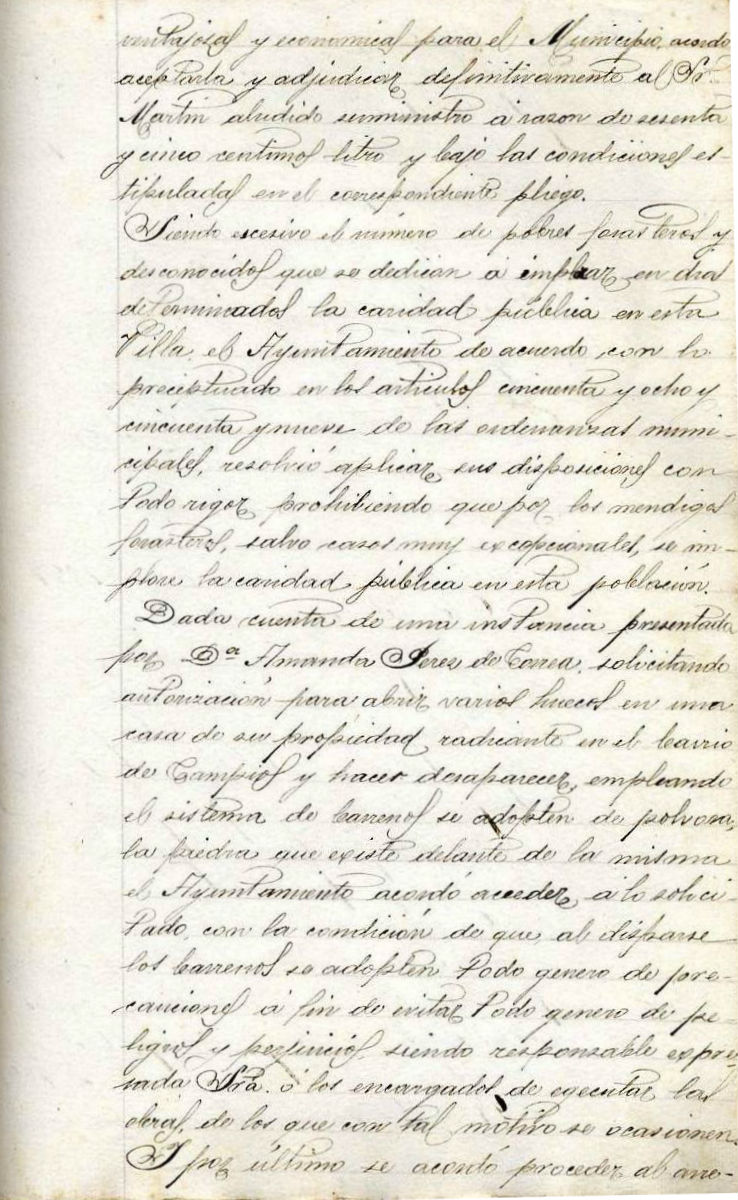 ventajosas y economicas para el Municipio, acordo
aceptarla y adjudicar definitivamente al Sr.
Martin aludido suministro á razon de sesenta
y cinco centimos litro y bajo las condiciones es-
tipuladas en el correspondiente pliego.
Siendo escesivo el número de pobres forasteros y
desconocidos que se dedican á implorar en dias
determinados la caridad pública en esta
Villa, el Ayuntamiento de acuerdo con lo
preceptuado en los articulos cincuenta y ocho y
cincuenta y nueve de las ordenanzas muni-
cipales, resolvió aplicar sus disposiciones con
todo rigor prohibiendo que por los mendigos
forasteros, salvo casos muy excepcionales, se im-
plore la caridad pública en esta población.
Dada cuenta de una instancia presentada
por Dª Amanda Perez de Correa, solicitando
autorización para abrir varios huecos en una
casa de su propiedad radicante en el barrio
de y hacer desaparecer, empleando
el sistema de barrenos se adopten de polvora,
la piedra que existe delante de la misma
el Ayuntamiento acordó acceder á lo solici-
tado, con la condición de que al disparse
los barrenos se adopten todo genero de pre-
cauciones á fin de evitar todo genero de pe-
ligros y perjuicios siendo responsable expre-
sada Sra. ó los encargados de egecutar las
obras, de los que con tal motivo se ocasionen.
Y por último se acordó proceder al arre-